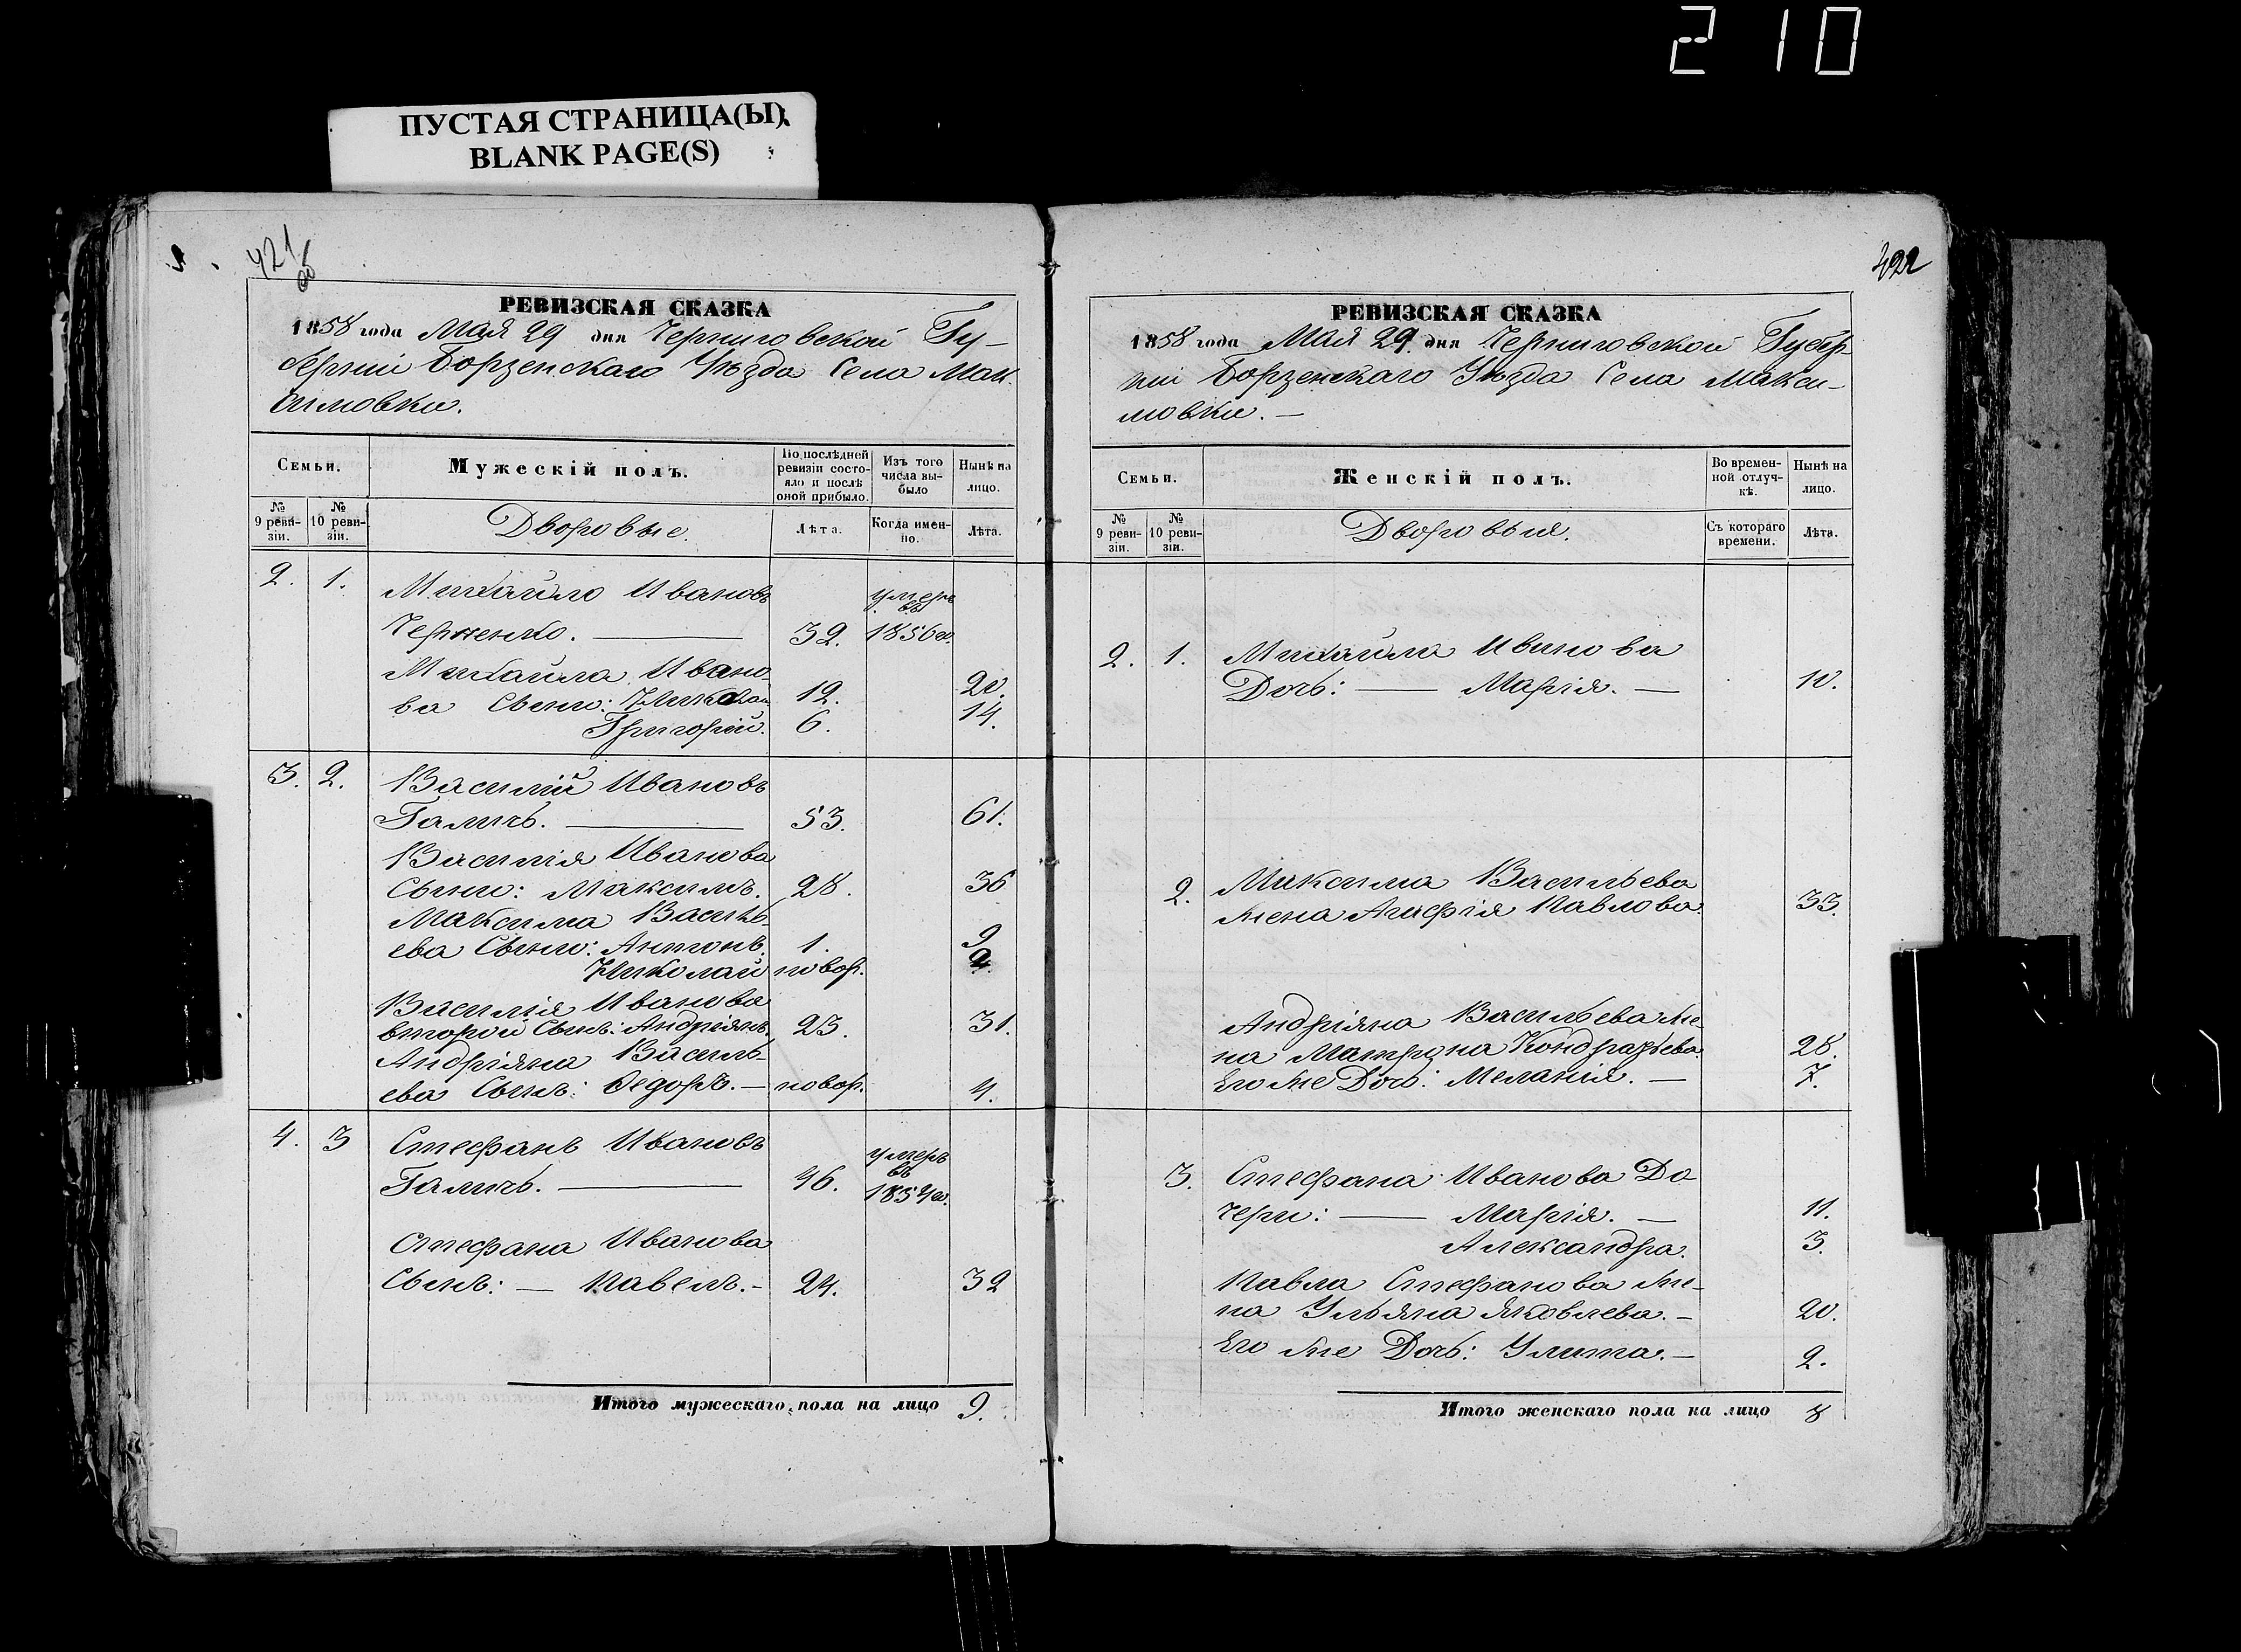 210
ПУСТАЯ СТРАНИЦА(Ы)
BLANK PAGE(S)
421
об
РЕВИЗСКАЯ СКАЗКА
1858 года Мая 29 дня Черниговской Гу-
берніи Борзенскаго Уѣзда Села Мак-
симовки.
Семьи.
Мужескій полъ.
По послѣдней ревизіи состояло и послѣ оной прибыло.
Изъ того числа выбыло
Нынѣ на лицо.
№ 9 ревизіи.
№ 10 ревизіи.
Дворовые.
Лѣта.
Когда именно.
Лѣта.
2. 1. Михайло Ивановъ умеръ въ
Черненко. — 32. 1856го.
Михайла Ивано-
ва Сыны: Николай 12. 20.
Григорій. 6. 14.
3. 2. Василій Ивановъ
Галичъ. — 53. 61.
Василія Иванова
Сыны: Максимъ. 28. 36
Максима Василь-
ева Сыны: Антонъ. 1. 9
Николай новор. 2.
Василія Иванова
второй Сынъ: Андріянъ. 23. 31.
Андріяна Василь-
ева Сынъ: Ѳедоръ. — новор. 4.
4. 3 Стефанъ Ивановъ умеръ въ
Галичъ. — 46. 1854го.
Стефана Иванова
Сынъ: — Павелъ. — 24. 32
Итого мужескаго пола на лицо 9.
422
РЕВИЗСКАЯ СКАЗКА
1858 года Мая 29. дня Черниговской Губер-
ніи Борзенскаго Уѣзда Села Макси-
мовки. —
Семьи.
Женскій полъ.
Во временной отлучкѣ.
Нынѣ на лицо.
№ 9 ревизіи.
№ 10 ревизіи.
Дворовыя.
Съ котораго времени.
Лѣта.
2. 1. Михайла Иванова
Дочь: — Марія. — 10.
2. Максима Васильева
жена Агафія Павлова. 33.
Андріяна Васильева же-
на Матрона Кондратьева 28.
Его же Дочь: Меланія. — 7.
3. Стефана Иванова До
чери: — Марія. — 11.
Александра. 3.
Павла Стефанова же-
на Ульяна Яковлева. — 20.
Его же Дочь: Улита. — 2.
Итого женскаго пола на лицо 8